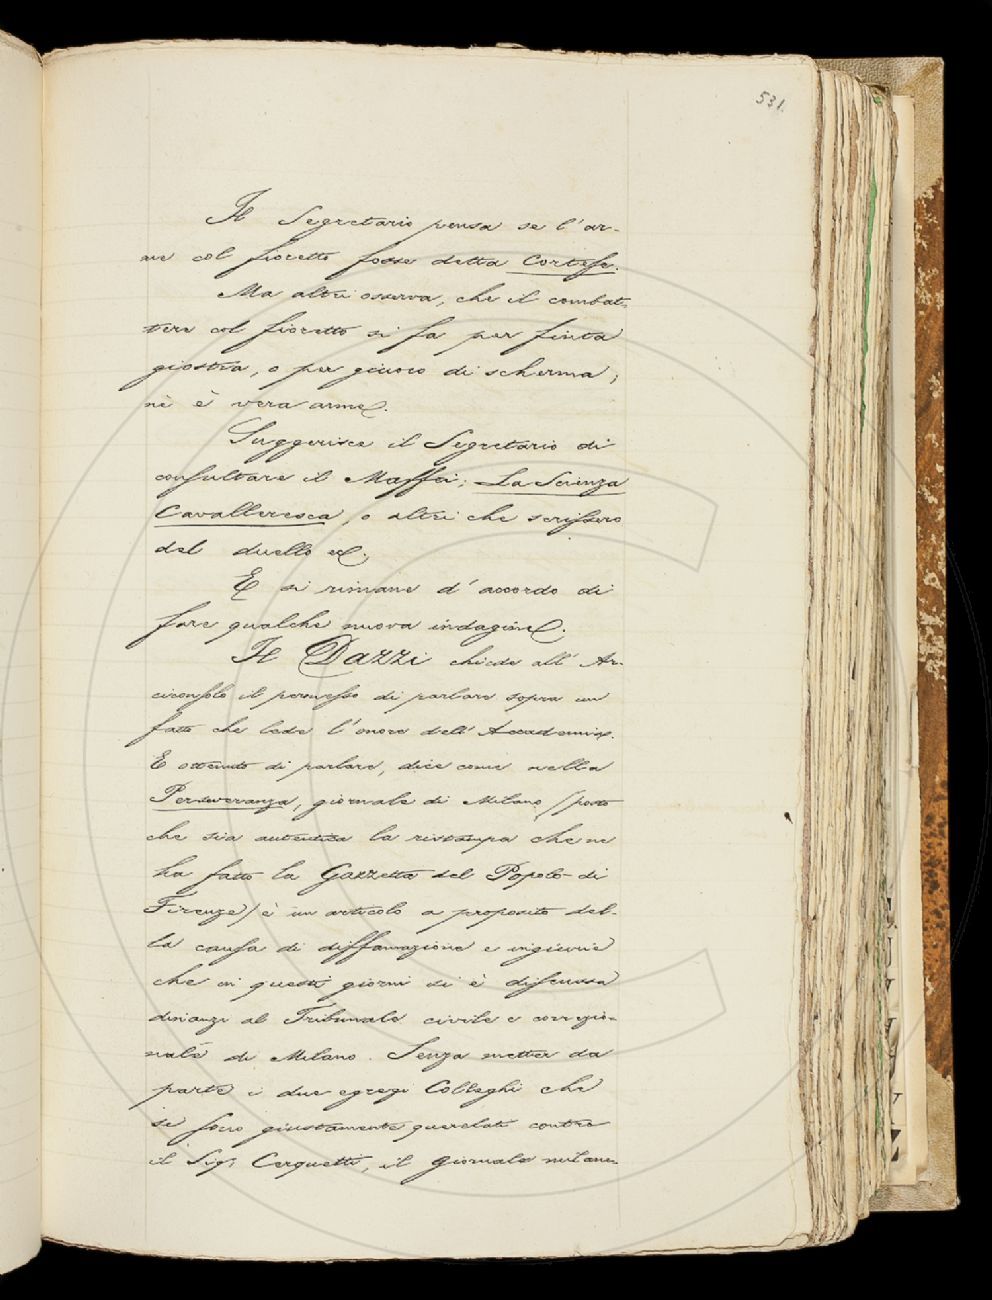 531.
Il Segretario pensa se l'ar-
me col fioretto fosse detta Cortese.
Ma altri osserva, che il combat-
tere col fioretto si fa per finta
giostra, o per giuoco di scherma;
nè è vera arme.
Suggerisce il Segretario di
consultare il Maffei; La Scienza
Cavalleresca, o altri che scrissero
del duello ec.
E si rimane d'accordo di
fare qualche nuova indagine.
Il Dazzi chiede all'Ar-
ciconsolo il permesso di parlare sopra un
fatto che lede l'onore dell'Accademia.
E ottenuto di parlare, dice come nella
Perseveranza, giornale di Milano (posto
che sia autentica la ristampa che ne
ha fatto la Gazzetta del Popolo di
Firenze) è un articolo a proposito del-
la causa di diffamazione e ingiurie
che in questi giorni si è discussa
dinanzi al Tribunale civile e correzio-
nale di Milano. Senza metter da
parte i due egregi Colleghi che
si sono giustamente querelati contro
il Sig; Cerquetti, il giornale milane-